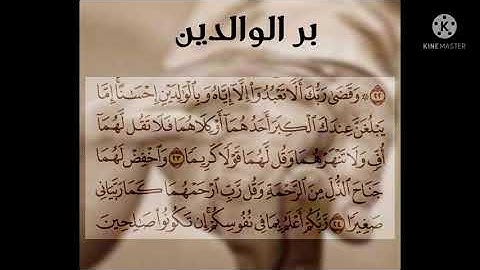 KINEMASTER
بر الوالدين
٢٢ ۞ وَقَضَىٰ رَبُّكَ أَلَّا تَعْبُدُوٓا۟ إِلَّآ إِيَّاهُ وَبِٱلْوَٰلِدَيْنِ إِحْسَٰنًا ۚ إِمَّا
يَبْلُغَنَّ عِندَكَ ٱلْكِبَرَ أَحَدُهُمَآ أَوْ كِلَاهُمَا فَلَا تَقُل لَّهُمَآ
أُفٍّ وَلَا تَنْهَرْهُمَا وَقُل لَّهُمَا قَوْلًا كَرِيمًا ٢٣ وَٱخْفِضْ لَهُمَا
جَنَاحَ ٱلذُّلِّ مِنَ ٱلرَّحْمَةِ وَقُل رَّبِّ ٱرْحَمْهُمَا كَمَا رَبَّيَانِى
صَغِيرًا ٢٤ رَّبُّكُمْ أَعْلَمُ بِمَا فِى نُفُوسِكُمْ ۚ إِن تَكُونُوا۟ صَٰلِحِينَ